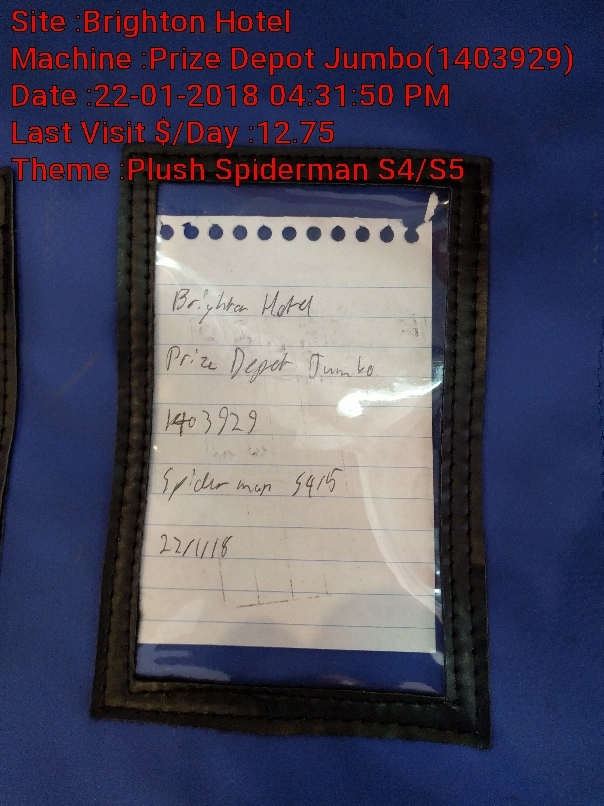 Site :Brighton Hotel
Machine :Prize Depot Jumbo(1403929)
Date :22-01-2018 04:31:50 PM
Last Visit $/Day :12.75
Theme :Plush Spiderman S4/S5
Brighton Hotel
Prize Depot Jumbo
1403929
Spiderman S4/5
22/1/18